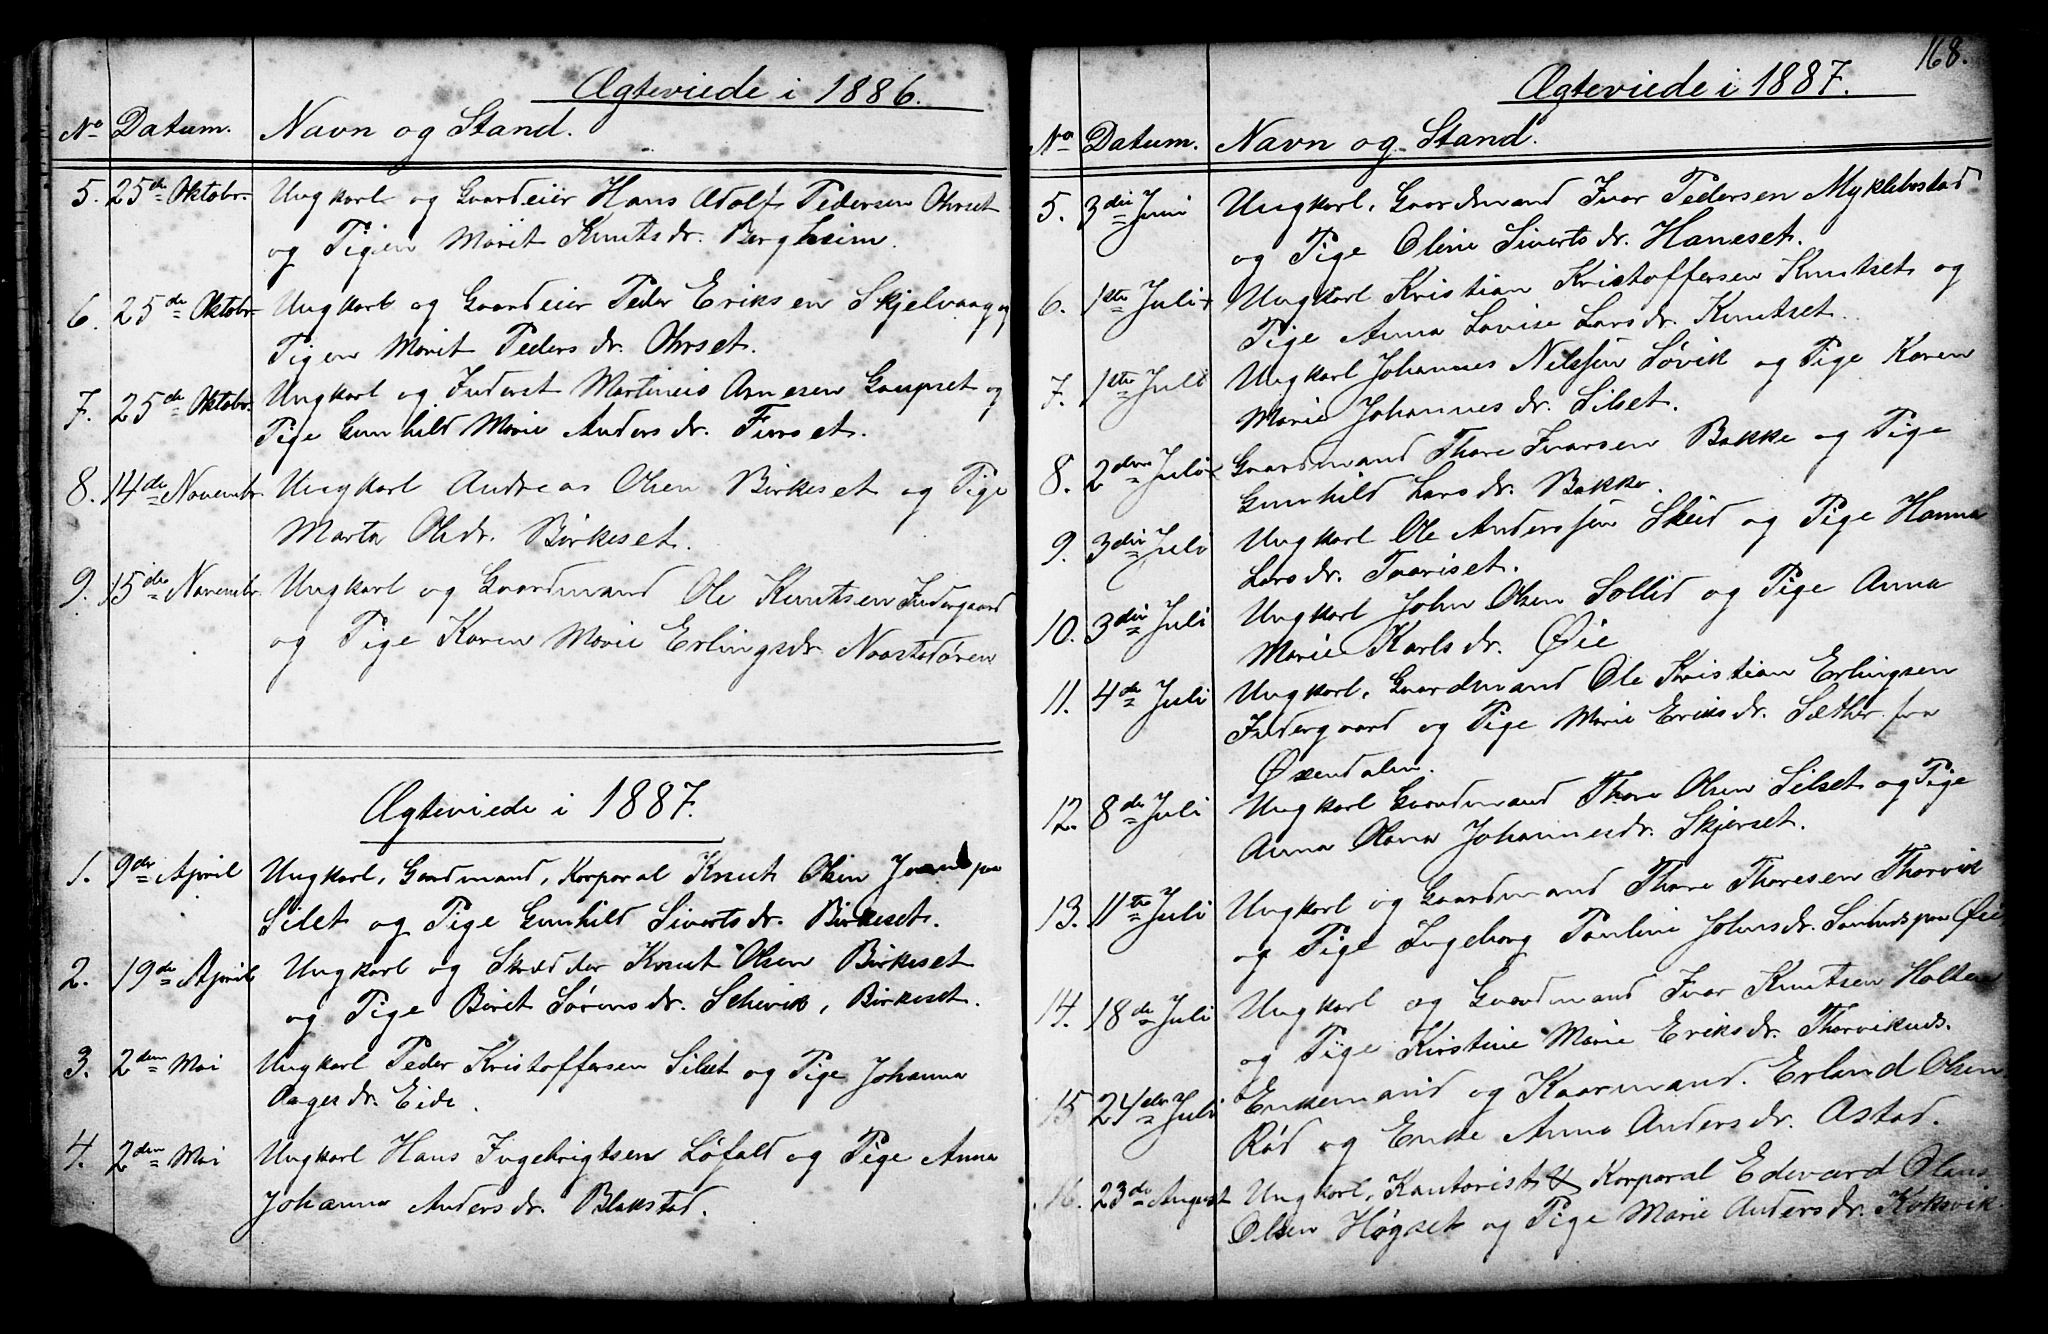 Ægteviede i 1886.
No Datum. Navn og Stand.
5. 25de Oktobr. Ungkarl og Gaardeier Hans Adolf Pedersen Ohrset
og Pigen Marit Knutsdr. Bergheim.
6. 25de Oktobr. Ungkarl og Gaardeier Peder Eriksen Skjelvaag og
Pigen Marit Pedersdr. Ohrset.
7. 25de Oktobr. Ungkarl og Inderst Martinus Arnesen Gaupset og
Pige Gunhild Marie Andersdr. Furset.
8. 14de Novembr. Ungkarl Andreas Olsen Birkeset og Pige
Marta Olsdr. Birkeset.
9. 15de Novembr. Ungkarl og Gaardmand Ole Knutsen Indergaard
og Pige Karen Marie Erlingsdr. Naastadøren
Ægteviede i 1887.
1. 9de April Ungkarl, Gardmand, Korporal Knut Olsen paa
Silset og Pige Gunhild Sivertsdr. Birkeset.
2. 19de April Ungkarl og Skrædder Knut Olsen Birkeset
og Pige Beret Sørensdr. Schevik, Birkeset.
3. 2den Mai Ungkarl Peder Kristoffersen Silset og Pige Johanna
Aagesdr. Eide.
4. 2den Mai Ungkarl Hans Ingebrigtsen Løfald og Pige Anna
Johanna Andersdr. Blakstad.
168.
Ægteviede i 1887.
No Datum. Navn og Stand.
5. 3die Juni Ungkarl, Gaardmand Ivar Pedersen Myklebostad
og Pige Oline Sivertsdr. Haneset.
6. 1ste Juli Ungkarl Kristian Kristoffersen Knutset og
Pige Anna Lovise Larsdr. Knutset.
7. 1ste Juli Ungkarl Johannes Nilssen Søvik og Pige Karen
Marie Johannesdr. Silset.
8. 2den Juli Gaardmand Thore Ivarsen Bakke og Pige
Gunhild Larsdr. Bakke.
9. 3die Juli Ungkarl Ole Anderssen Skeid og Pige Hanna
Larsdr. Tvariset.
10. 3die Juli Ungkarl John Olsen Sollid og Pige Anna
Marie Karlsdr. Øie
11. 4de Juli Ungkarl, Gaardmand Ole Kristian Erlingsen
Indergaard og Pige Marie Eriksdr. Sæther fra
Øxendalen.
12. 8de Juli Ungkarl Gaardmand Thore Olsen Silset og Pige
Anna Olana Johannesdr. Skjerset.
13. 11te Juli Ungkarl og Gaardmand Thore Thoresen Thorvik
og Pige Ingeborg Pauline Johnsdr. paa Øie
14. 18de Juli Ungkarl og Gaardmand Ivar Knutsen Holten
og Pige Kirstine Marie Eriksdr. Thorvikuds.
15 24de Juli Enkemand og Kaarmand. Erland Olsen
Rød og Enke Anne Andersdr. Astad.
16. 23de August Ungkarl, Kantorist & Korporal Edevard Olaus
Olsen Høgset og Pige Marie Andersdr. Koksvik.